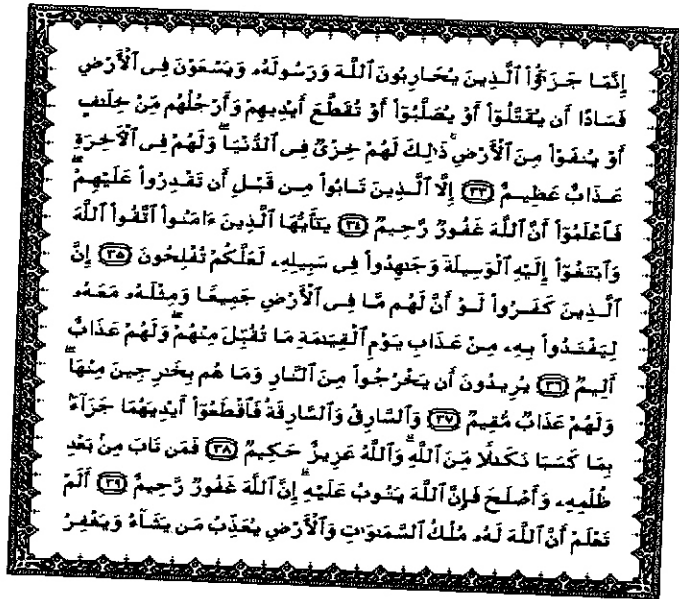 إِنَّمَا جَزَٰٓؤُا۟ ٱلَّذِينَ يُحَارِبُونَ ٱللَّهَ وَرَسُولَهُۥ وَيَسْعَوْنَ فِى ٱلْأَرْضِ
فَسَادًا أَن يُقَتَّلُوٓا۟ أَوْ يُصَلَّبُوٓا۟ أَوْ تُقَطَّعَ أَيْدِيهِمْ وَأَرْجُلُهُم مِّنْ خِلَٰفٍ
أَوْ يُنفَوْا۟ مِنَ ٱلْأَرْضِ ۚ ذَٰلِكَ لَهُمْ خِزْىٌ فِى ٱلدُّنْيَا ۖ وَلَهُمْ فِى ٱلْـَٔاخِرَةِ
عَذَابٌ عَظِيمٌ ٣٣ إِلَّا ٱلَّذِينَ تَابُوا۟ مِن قَبْلِ أَن تَقْدِرُوا۟ عَلَيْهِمْ ۖ
فَٱعْلَمُوٓا۟ أَنَّ ٱللَّهَ غَفُورٌ رَّحِيمٌ ٣٤ يَٰٓأَيُّهَا ٱلَّذِينَ ءَامَنُوا۟ ٱتَّقُوا۟ ٱللَّهَ
وَٱبْتَغُوٓا۟ إِلَيْهِ ٱلْوَسِيلَةَ وَجَٰهِدُوا۟ فِى سَبِيلِهِۦ لَعَلَّكُمْ تُفْلِحُونَ ٣٥ إِنَّ
ٱلَّذِينَ كَفَرُوا۟ لَوْ أَنَّ لَهُم مَّا فِى ٱلْأَرْضِ جَمِيعًا وَمِثْلَهُۥ مَعَهُۥ
لِيَفْتَدُوا۟ بِهِۦ مِنْ عَذَابِ يَوْمِ ٱلْقِيَٰمَةِ مَا تُقُبِّلَ مِنْهُمْ ۖ وَلَهُمْ عَذَابٌ
أَلِيمٌ ٣٦ يُرِيدُونَ أَن يَخْرُجُوا۟ مِنَ ٱلنَّارِ وَمَا هُم بِخَٰرِجِينَ مِنْهَا ۖ
وَلَهُمْ عَذَابٌ مُّقِيمٌ ٣٧ وَٱلسَّارِقُ وَٱلسَّارِقَةُ فَٱقْطَعُوٓا۟ أَيْدِيَهُمَا جَزَآءًۢ
بِمَا كَسَبَا نَكَٰلًا مِّنَ ٱللَّهِ ۗ وَٱللَّهُ عَزِيزٌ حَكِيمٌ ٣٨ فَمَن تَابَ مِنۢ بَعْدِ
ظُلْمِهِۦ وَأَصْلَحَ فَإِنَّ ٱللَّهَ يَتُوبُ عَلَيْهِ ۗ إِنَّ ٱللَّهَ غَفُورٌ رَّحِيمٌ ٣٩ أَلَمْ
تَعْلَمْ أَنَّ ٱللَّهَ لَهُۥ مُلْكُ ٱلسَّمَٰوَٰتِ وَٱلْأَرْضِ يُعَذِّبُ مَن يَشَآءُ وَيَغْفِرُ